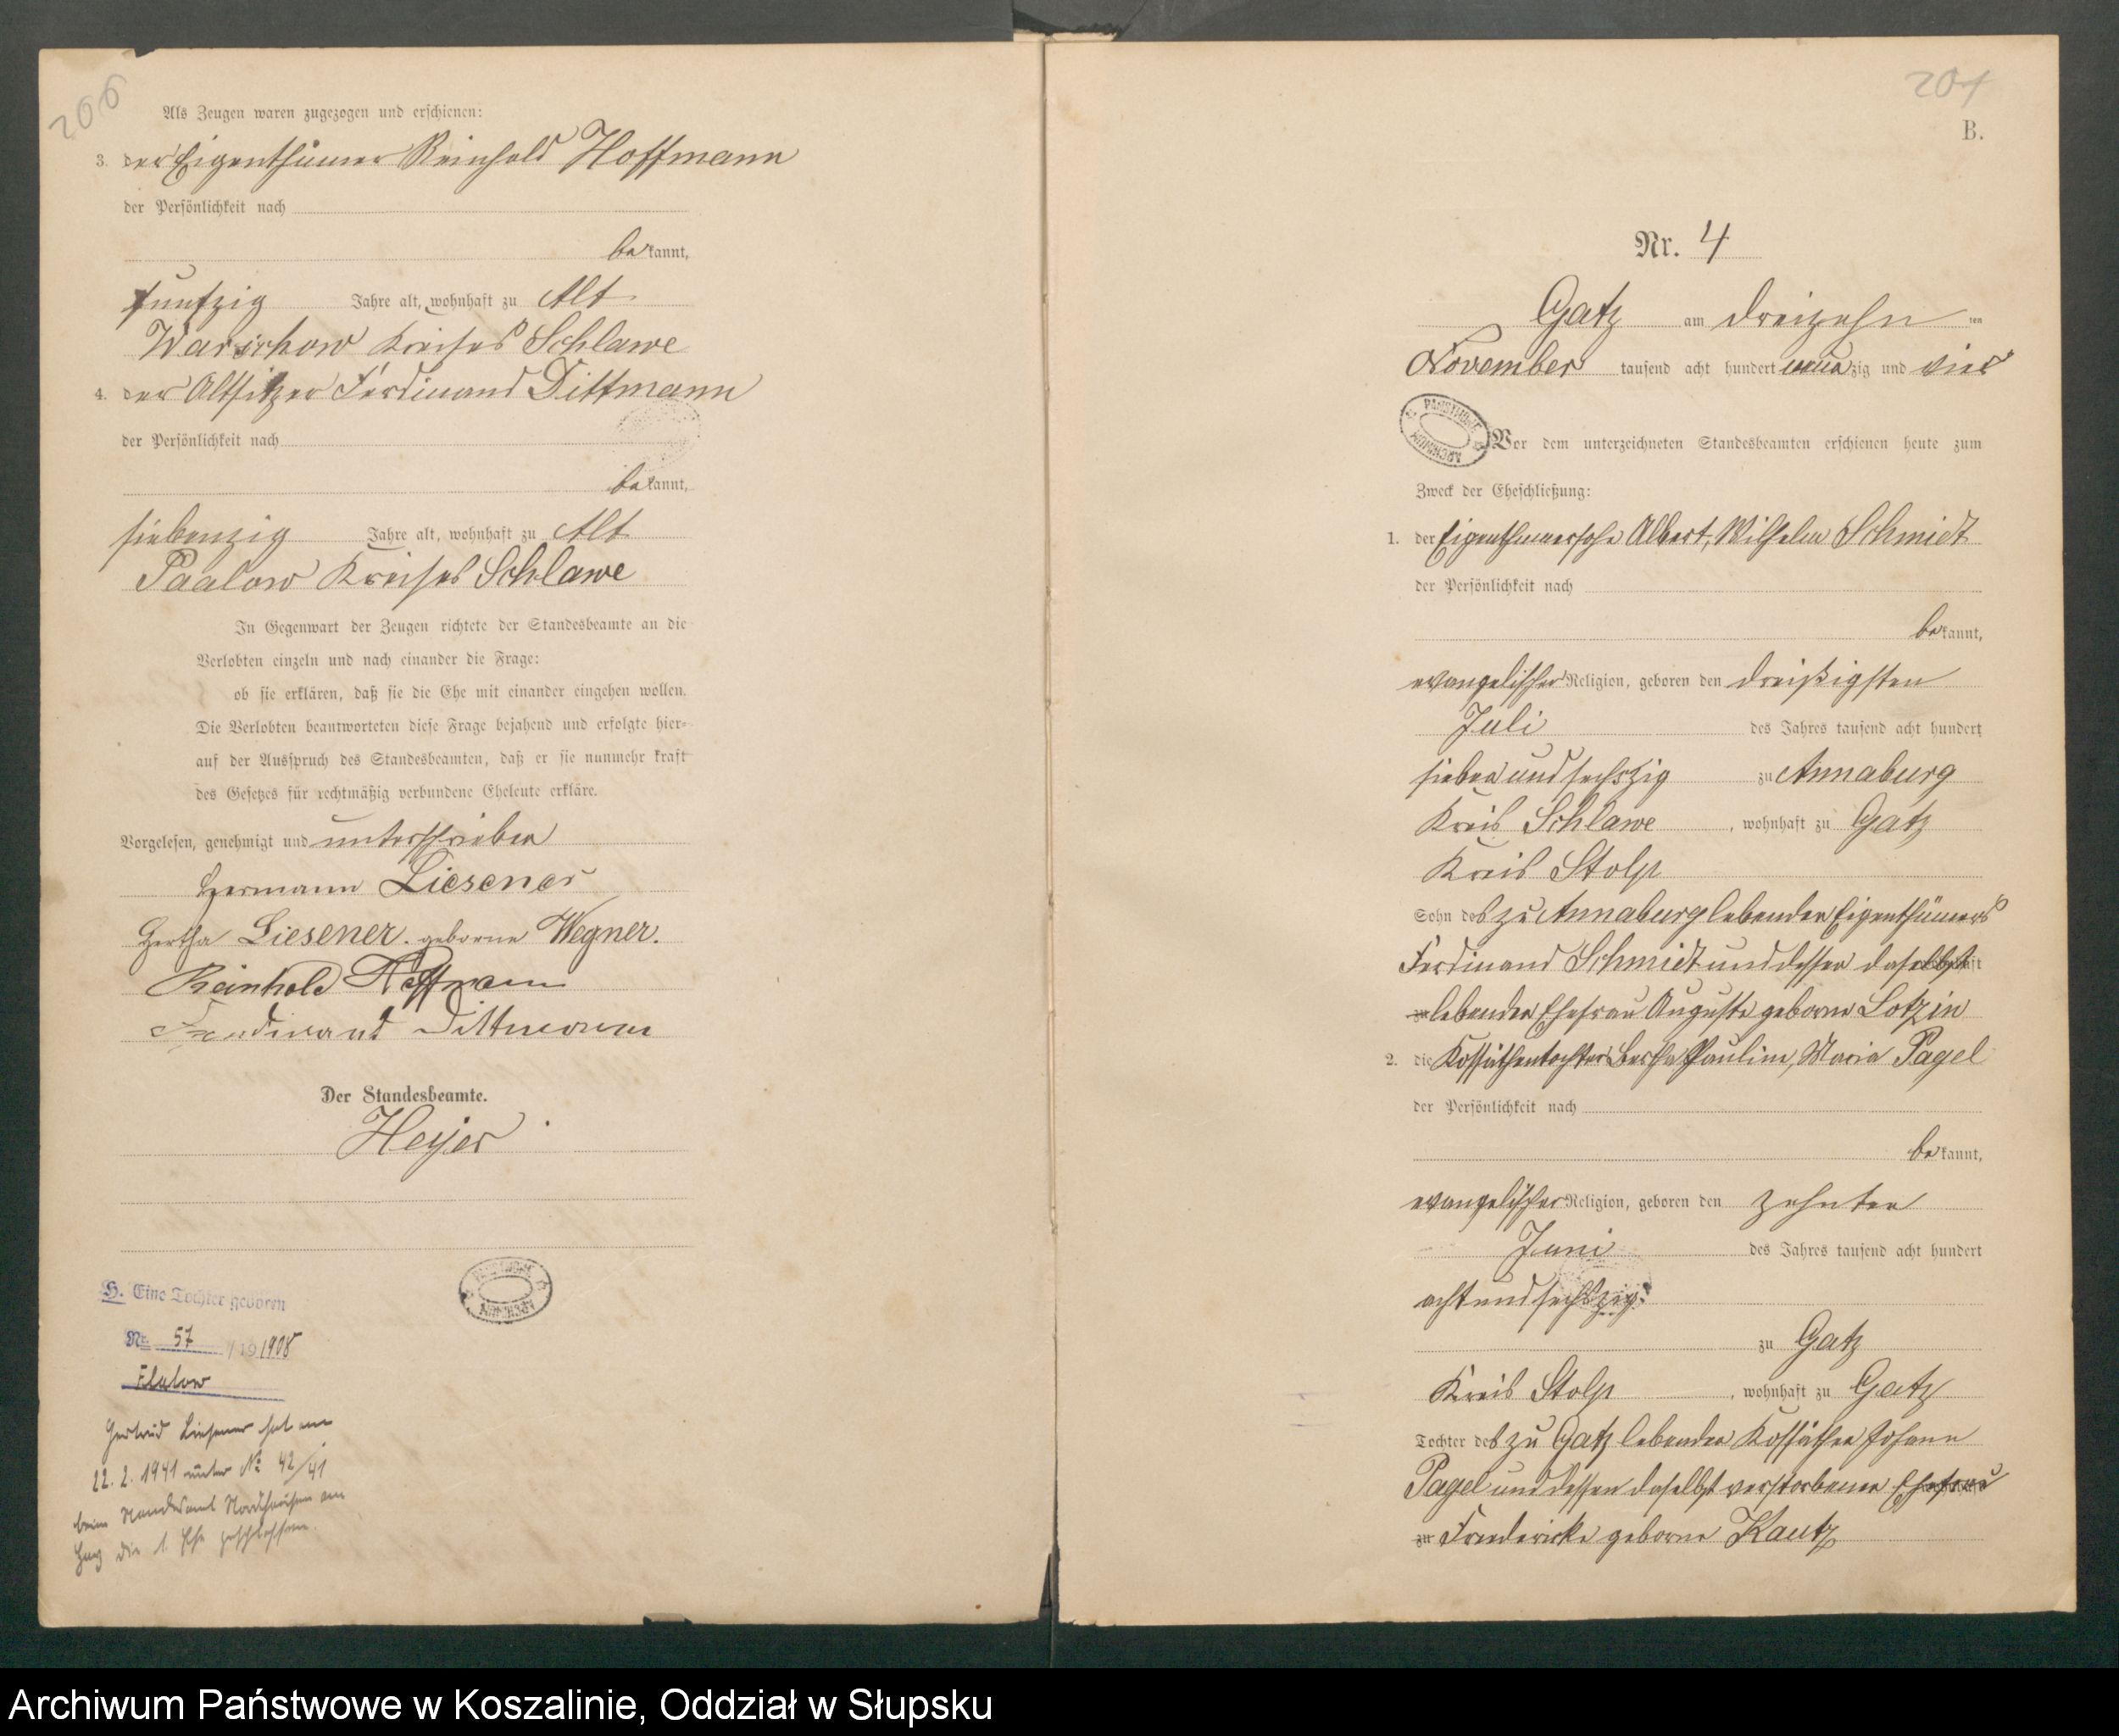 206
Als Zeugen waren zugezogen und erschienen:
3. der Eigenthümer Reinhold Hoffmann
der Persönlichkeit nach
bekannt,
funfzig Jahre alt, wohnhaft zu Alt
Warschow Kreises Schlawe
4. der Altsitzer Ferdinand Dittmann
der Persönlichkeit nach
bekannt,
siebenzig Jahre alt, wohnhaft zu Alt
Paalow Kreises Schlawe
In Gegenwart der Zeugen richtete der Standesbeamte an die
Verlobten einzeln und nach einander die Frage:
ob sie erklären, daß sie die Ehe mit einander eingehen wollen.
Die Verlobten beantworteten diese Frage bejahend und erfolgte hier-
auf der Ausspruch des Standesbeamten, daß er sie nunmehr kraft
des Gesetzes für rechtmäßig verbundene Eheleute erkläre.
Vorgelesen, genehmigt und unterschrieben
Hermann Liesener
Hertha Liesener. geborne Wegner.
Reinhold Hoffmann
Ferdinand Dittmann
Der Standesbeamte.
Heyer
H. Eine Tochter geboren
Nr. 57 /19 1908
Flatow
Gertrud Liesener hat am
22. 2. 1941 unter № 42/41
beim Standesamt Nordhausen am
Harz die 1. Ehe geschlossen.
201
B.
Nr. 4
Gatz am dreizehn ten
November tausend acht hundert neunzig und vier
PAŃSTWOWE ARCHIWUM
Vor dem unterzeichneten Standesbeamten erschienen heute zum
Zweck der Eheschließung:
1. der Eigenthümersohn Albert, Wilhelm Schmidt
der Persönlichkeit nach
bekannt,
evangelischer Religion, geboren den dreißigsten
Juli des Jahres tausend acht hundert
sieben und sechszig zu Annaburg
Kreis Schlawe, wohnhaft zu Gatz
Kreis Stolp
Sohn des zu Annaburg lebenden Eigenthümers
Ferdinand Schmidt und dessen daselbst
zu lebenden Ehefrau Auguste geborne Lotzin
2. die Kossäthentochter Bertha Pauline, Maria Pagel
der Persönlichkeit nach
bekannt,
evangelischer Religion, geboren den zehnten
Juni des Jahres tausend acht hundert
acht und sechszig
zu Gatz
Kreis Stolp, wohnhaft zu Gatz
Tochter des zu Gatz lebenden Kossäthen Johann
Pagel und dessen daselbst verstorbenen Ehefrau
zu Friedericke geborne Kautz
Archiwum Państwowe w Koszalinie, Oddział w Słupsku